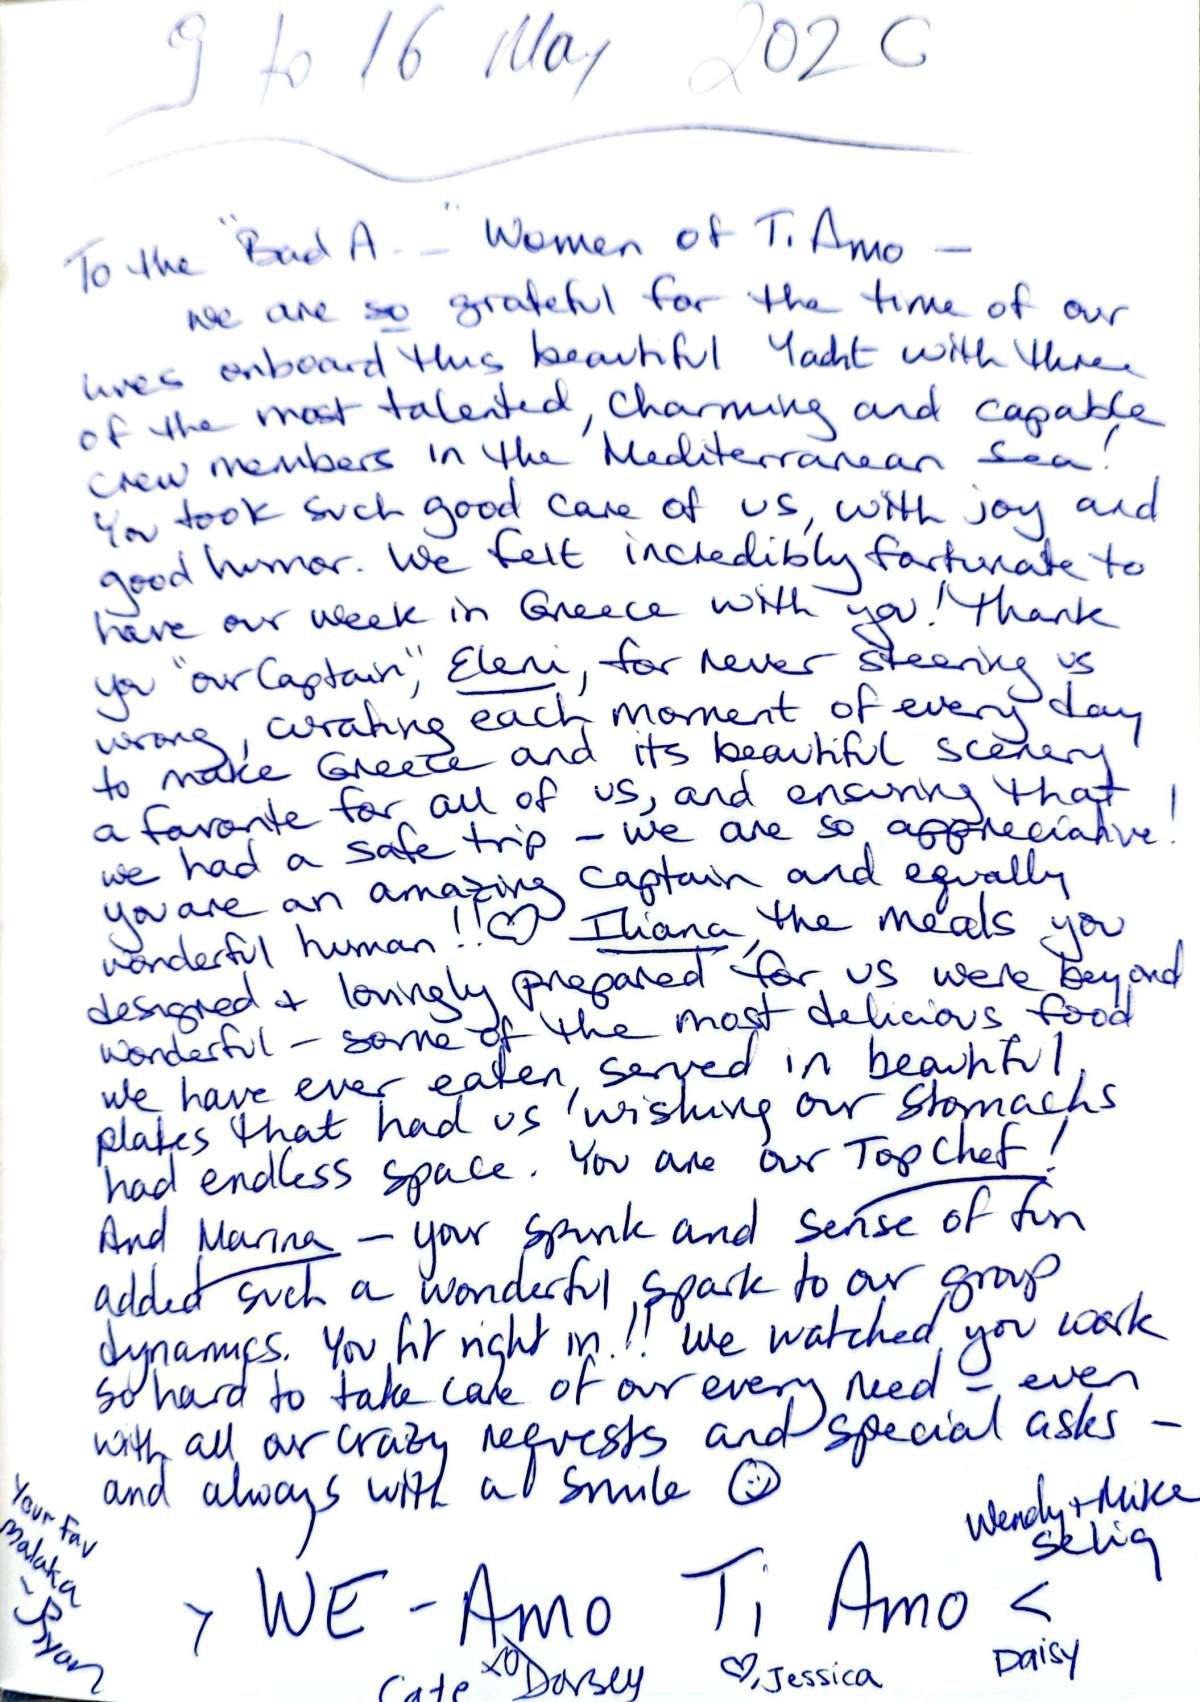 9 to 16 May 202
To the "Bad A--" Women of Ti Amo —
we are so grateful for the time of our
lives onboard this beautiful Yacht with three
of the most talented, charming and capable
crew members in the Mediterranean Sea!
You took such good care of us, with joy and
good humor. We felt incredibly fortunate to
have our week in Greece with you! Thank
you "our Captain", Eleni, for never steering us
wrong, curating each moment of every day
to make Greece and its beautiful scenery
a favorite for all of us, and ensuring that
we had a safe trip - we are so appreciative!
you are an amazing captain and equally
wonderful human!! ♡ Iliana, the meals you
designed + lovingly prepared for us were beyond
wonderful - some of the most delicious food
we have ever eaten, served in beautiful
plates that had us wishing our stomachs
had endless space. You are our Top Chef!
And Marina - your spunk and sense of fun
added such a wonderful spark to our group
dynamics. You fit right in!! We watched you work
so hard to take care of our every need - even
with all our crazy requests and special asks -
and always with a smile ☺
Your fav
malaka
- Ryan
Wendy + Mike
Selig
> WE - Amo Ti Amo <
Cate xo Dorsey
♡, Jessica
Daisy